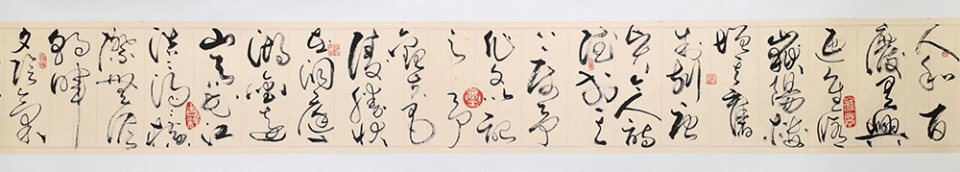 人和百
廢具興
乃重修
嶽陽樓
增其舊
制刻唐
賢今人詩
賦于其
上屬予
作文以記
之予
觀夫巴
陵勝狀
在洞庭一
湖銜遠
山吞長江
浩浩湯湯橫
際無涯
朝暉
夕陰氣象